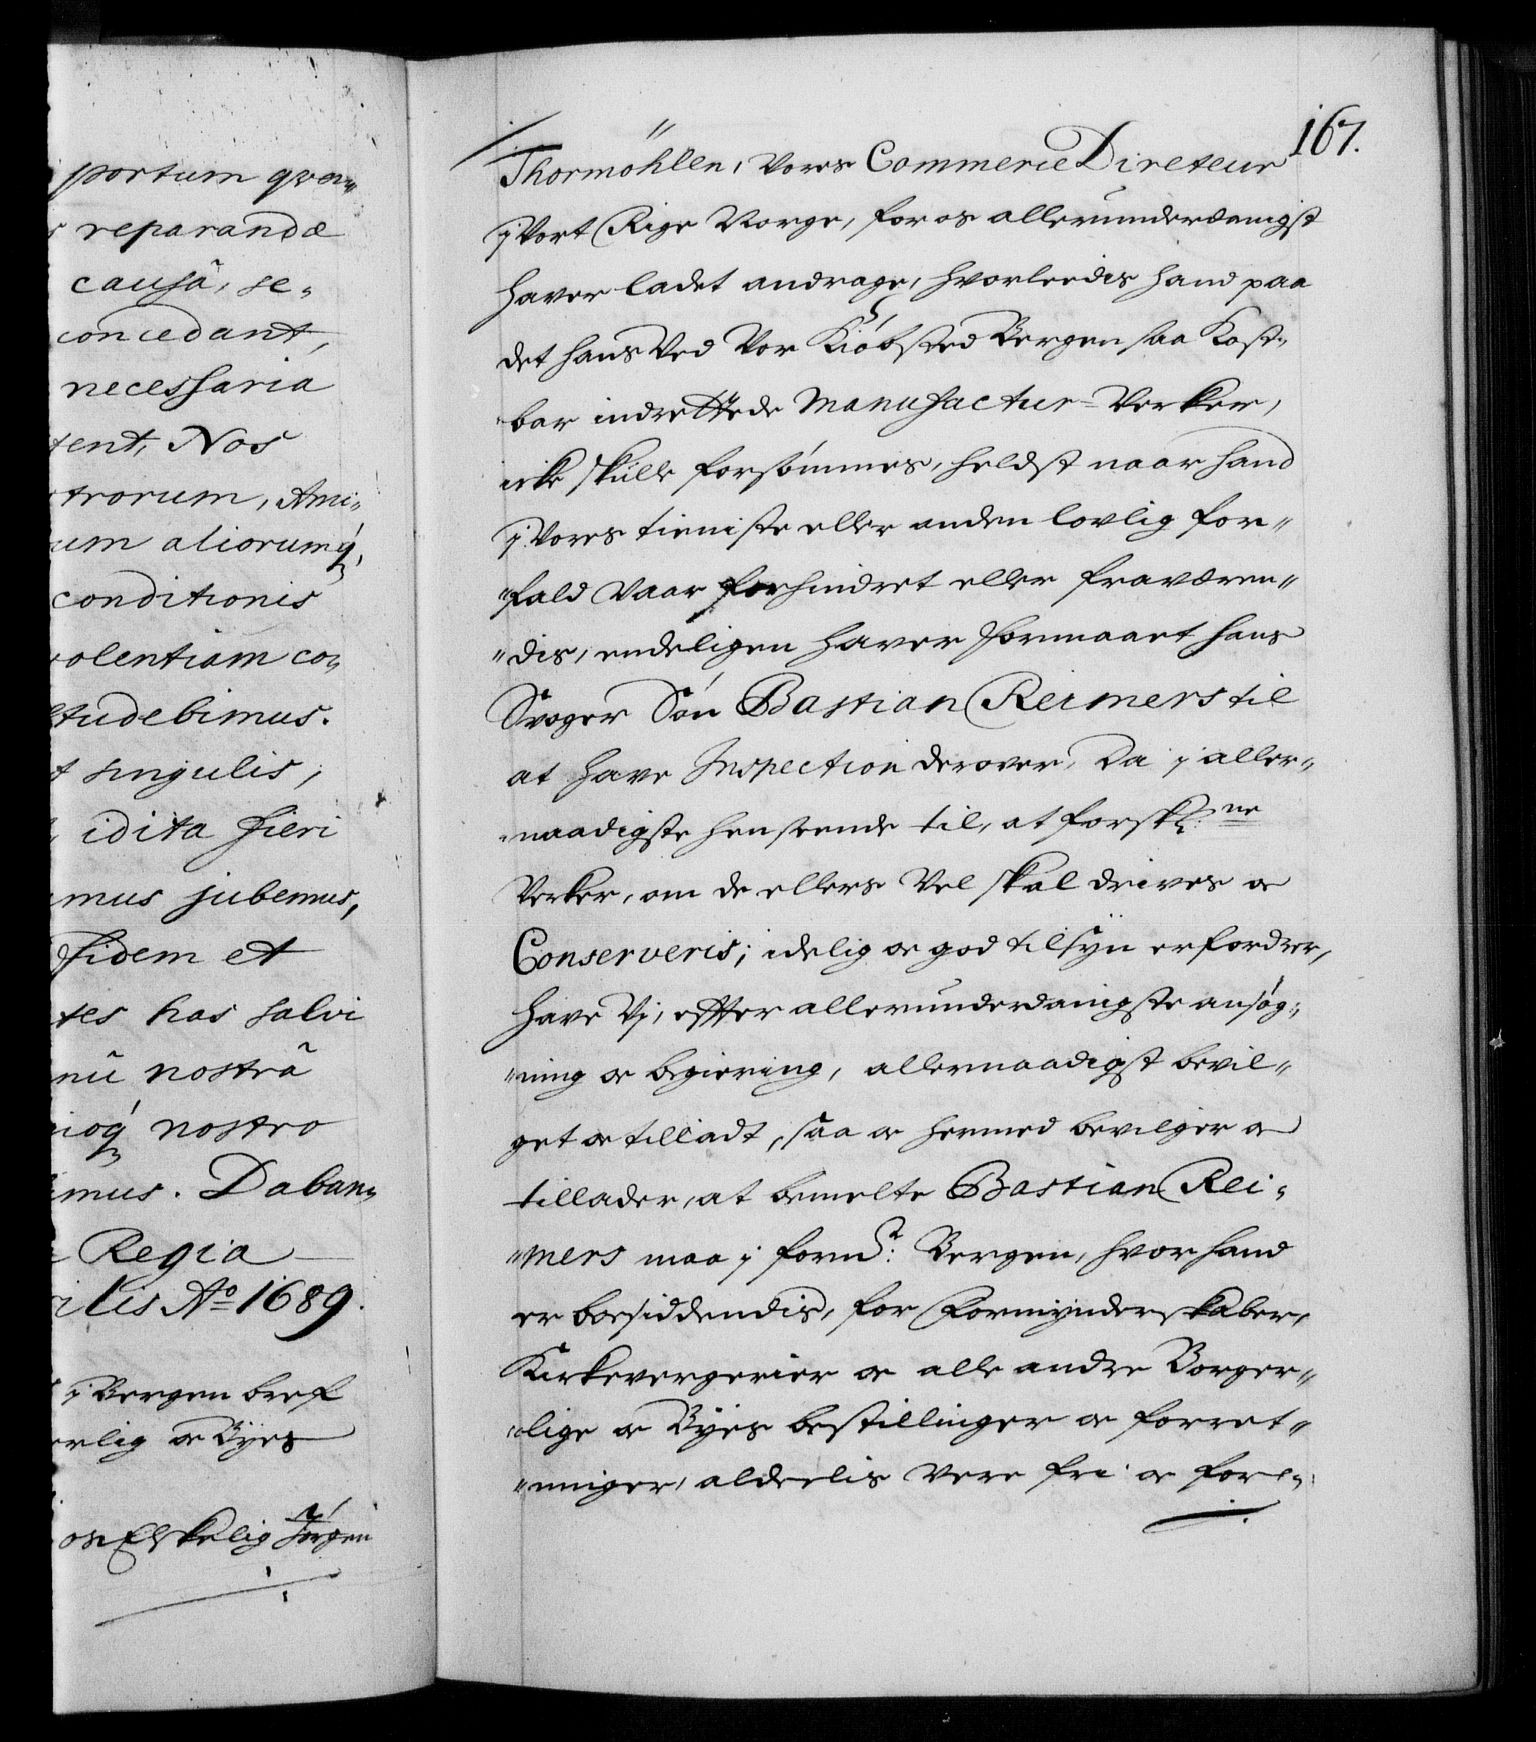 portum qven„
reparandæ
causâ, se„
concedant,
necessaria
tent, Nos
trorum, Ami„
um aliorumq́,
conditionis
volentiam co„
studebimus.
singulis,
idita fieri
mus jubemus,
fidem et
tes has salvi
nû nostrâ
ioq́ nostro
imus. Daban„
Regia
ilis Aº 1689.
i Bergen bref
erlig oc Byes
os Elskelig Jørgen
167.
Thormöhlen, Vores Commercie Direteur
j Vort Rige Norge, for os allerunderdanigst
haver ladet andrage, hvorledis hand paa
det hans Ved Vor Kiøbsted Bergen saa Kost„
bar indrettede Manufactur-Verker,
icke skulle forsømmes, heldst naar hand
j Vores tieniste eller anden lovlig for„
„fald Vaar forhindret eller fraværen„
„dis, endeligen haver formaaet hans
Svoger Søn Bastian Reimers til
at have Inspection derover, Da j aller„
„naadigste henseende til, at forskne
Verker, om de ellers Vel skal drives oc
Conserveris, idelig oc god tilsyn erfordrer,
have Vj, effter allerunderdanigste ansøg„
„ning oc begiering, allernaadigst bevil„
get oc tilladt, saa oc hermed bevilger oc
tillader, at bemelte Bastian Rei„
„mers maa j fornde: Bergen, hvor hand
er boesiddendis, for Formynderskaber,
Kirkevergerier oc alle andre Borger„
„lige oc Byes bestillinger oc forret„
„ninger, aldeelis Vere fri oc for„